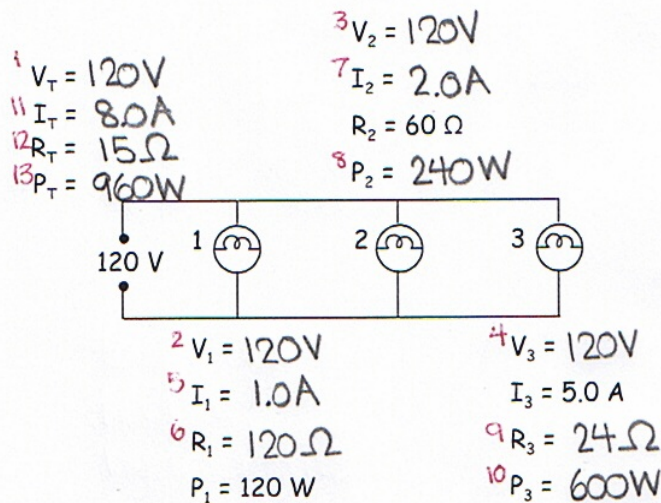 1 V_T = 120V
11 I_T = 8.0A
12 R_T = 15Ω
13 P_T = 960W
3 V₂ = 120V
7 I₂ = 2.0A
R₂ = 60 Ω
8 P₂ = 240W
120 V
1
2
3
2 V₁ = 120V
5 I₁ = 1.0A
6 R₁ = 120Ω
P₁ = 120 W
4 V₃ = 120V
I₃ = 5.0 A
9 R₃ = 24Ω
10 P₃ = 600W